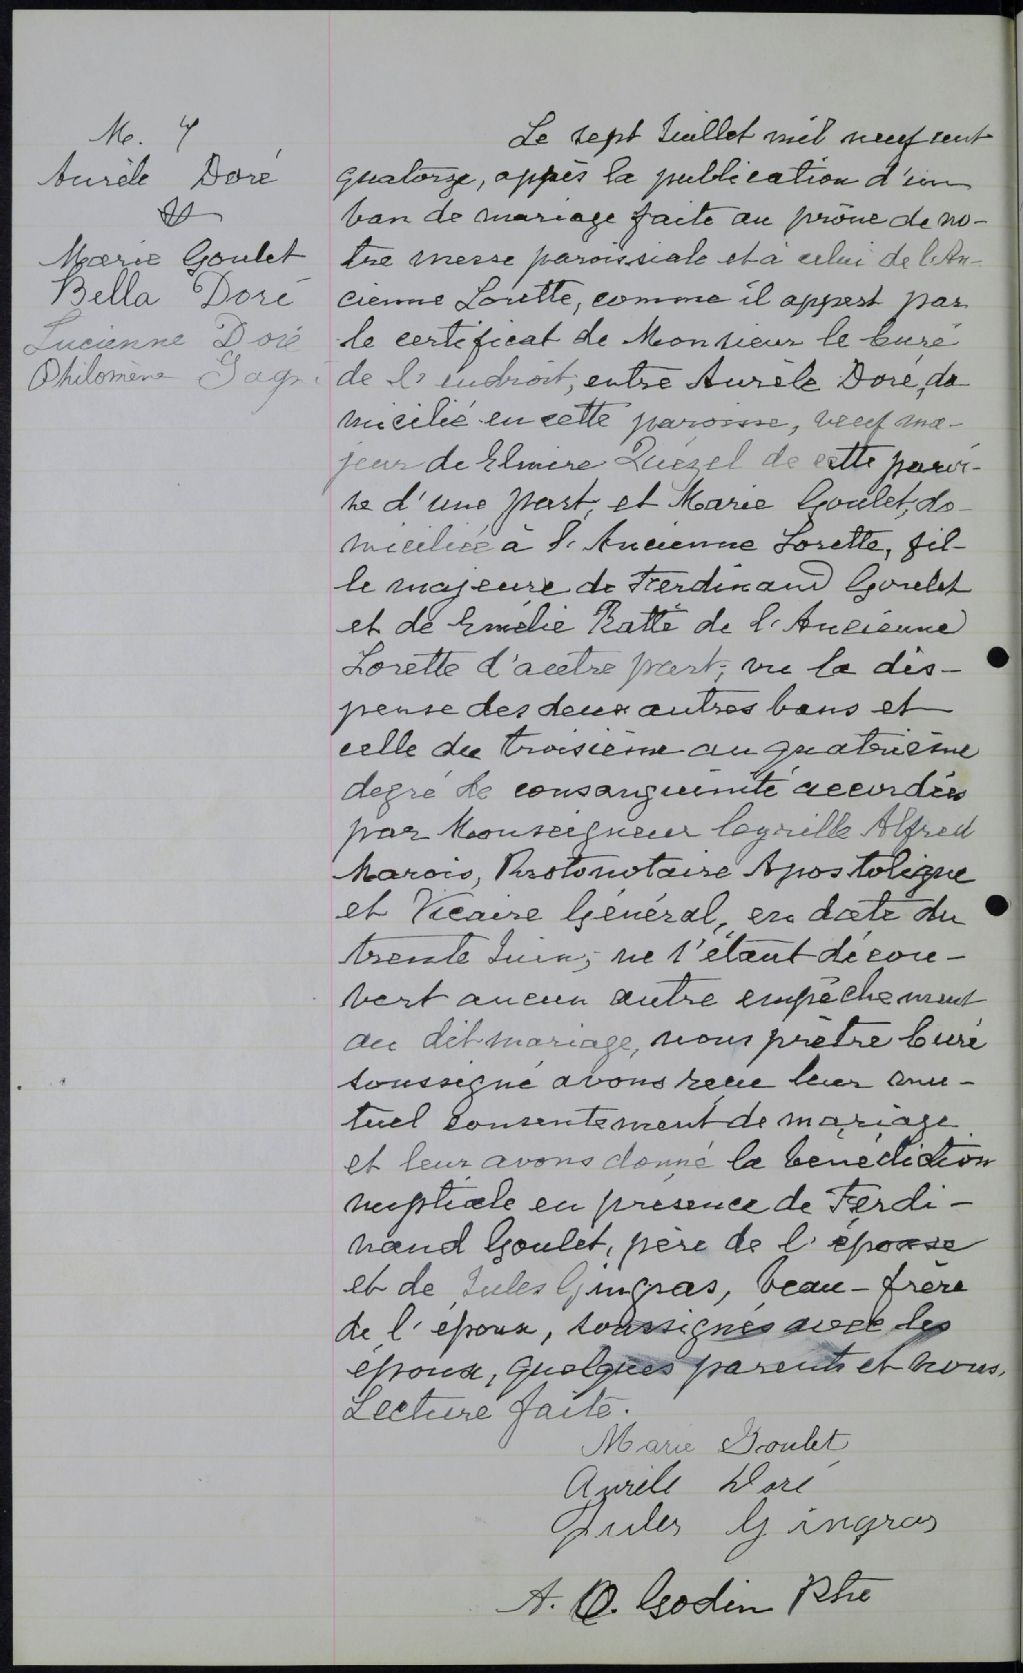 M. 4
Aurèle Doré
&
Marie Goulet
Bella Doré
Lucienne Doré
Philomène Gagné
Le sept Juillet mil neuf cent
quatorze, après la publication d'un
ban de mariage faite au prône de no-
tre messe paroissiale et à celui de l'An-
cienne Lorette, comme il appert par
le certificat de Monsieur le Curé
de l'endroit, entre Aurèle Doré, do
micilié en cette paroisse, veuf ma-
jeur de Elmire Quézel de cette parois-
se d'une part, et Marie Goulet, do-
miciliée à l'Ancienne Lorette, fil-
le majeure de Ferdinand Goulet
et de Emélie Ratté de l'Ancienne
Lorette d'autre part; vu la dis-
pense des deux autres bans et
celle du troisième au quatrième
degré de consanguinité accordées
par Monseigneur Cyrille Alfred
Marois, Protonotaire Apostolique
et Vicaire Général, en date du
trente Juin; ne s'étant décou-
vert aucun autre empêchement
au dit mariage, nous prêtre Curé
soussigné avons reçu leur mu-
tuel consentement de mariage
et leur avons donné la bénédiction
nuptiale en présence de Ferdi-
nand Goulet, père de l'épouse
et de Jules Gingras, beau-frère
de l'époux, soussignés avec les
époux, quelques parents et nous.
Lecture faite.
Marie Goulet
Aurèle Doré
Jules Gingras
A. O. Godin Ptre